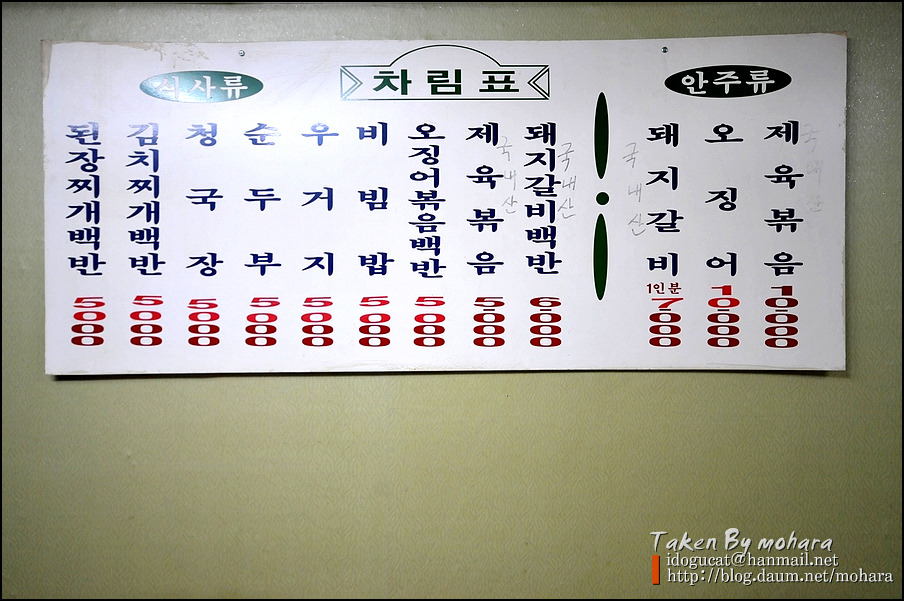 차림표
식사류
된장찌개백반
5000
김치찌개백반
5000
청국장
5000
순두부
5000
우거지
5000
비빔밥
5000
오징어볶음백반
5000
제육볶음
국내산
5000
돼지갈비백반
국내산
6000
안주류
돼지갈비
국내산
1인분
7000
오징어
10000
제육볶음
국내산
10000
Taken By mohara
idogucat@hanmail.net
http://blog.daum.net/mohara